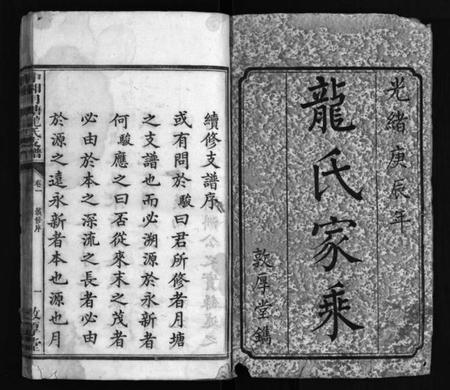 光緒庚辰年
龍氏家乘
敦厚堂鐫
續修支譜序
或有問於駿曰君所修者月塘
之支譜也而必溯源於永新者
何駿應之曰否從來末之茂者
必由於本之深流之長者必由
於源之遠永新者本也源也月
中湘月塘龍氏支譜
卷一
敦厚堂